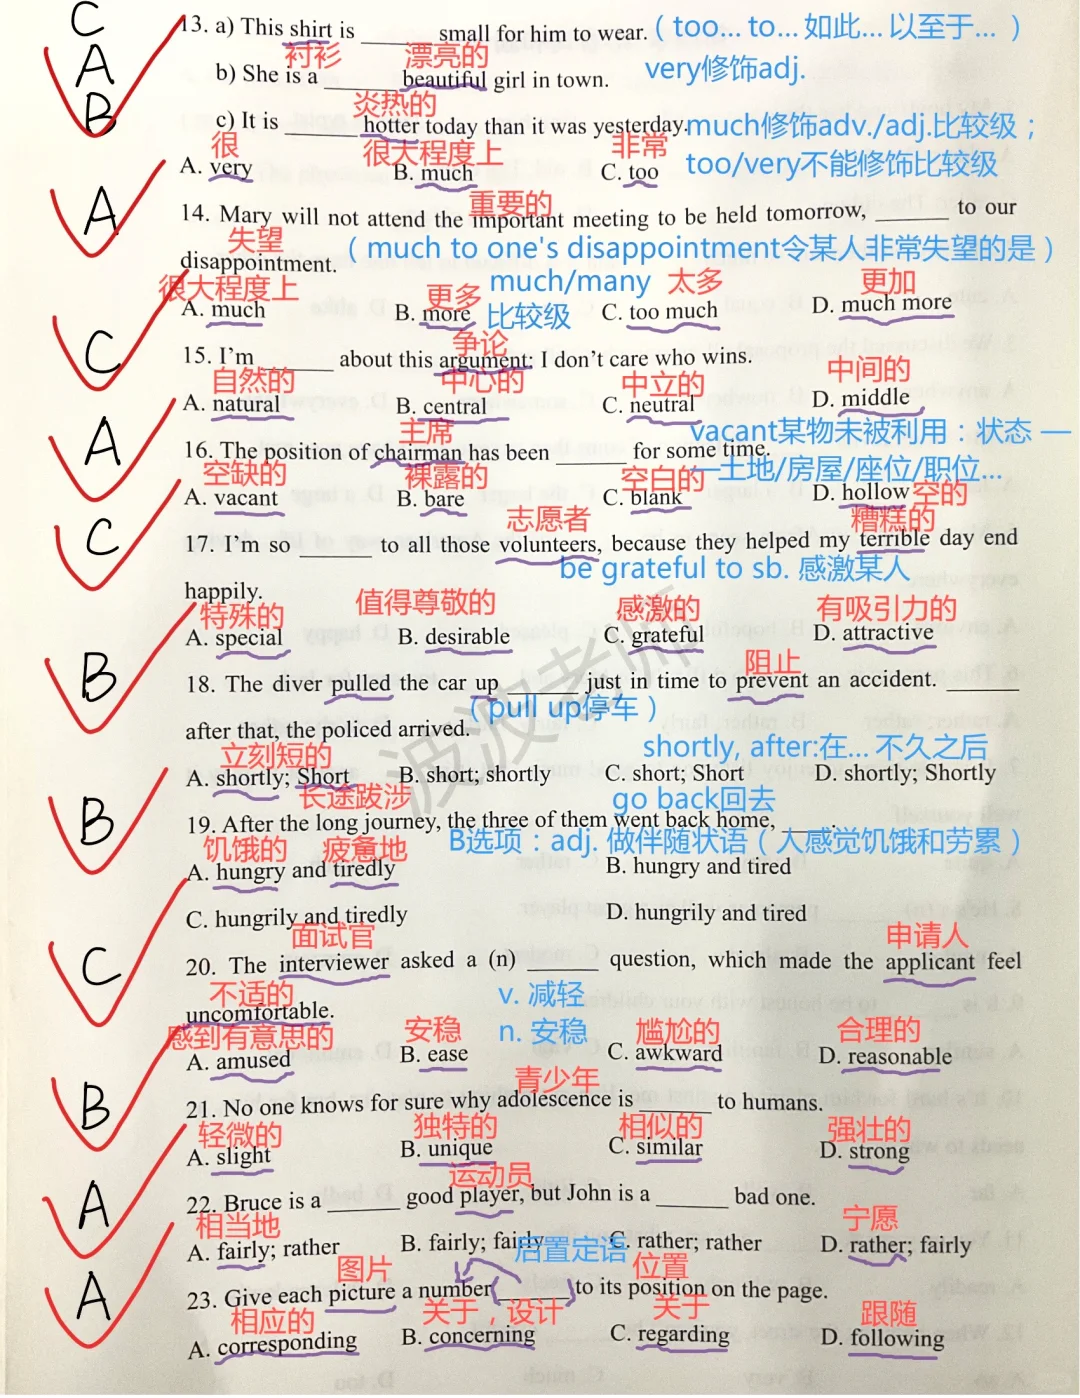 C
13. a) This shirt is ______ small for him to wear. （ too... to... 如此... 以至于... ）
A
衬衫 漂亮的
b) She is a ______ beautiful girl in town. very修饰adj.
B
炎热的
c) It is ______ hotter today than it was yesterday. much修饰adv./adj.比较级；
很 很大程度上 非常
A. very B. much C. too too/very不能修饰比较级
A
重要的
14. Mary will not attend the important meeting to be held tomorrow, ______ to our
失望
disappointment. （ much to one's disappointment令某人非常失望的是 ）
很大程度上 更多 much/many 太多 更加
A. much B. more 比较级 C. too much D. much more
C
争论
15. I'm ______ about this argument: I don't care who wins.
自然的 中心的 中立的 中间的
A. natural B. central C. neutral D. middle
A
主席 vacant某物未被利用：状态 —
16. The position of chairman has been ______ for some time.
空缺的 裸露的 空白的 —土地/房屋/座位/职位...
A. vacant B. bare C. blank D. hollow 空的
C
志愿者 糟糕的
17. I'm so ______ to all those volunteers, because they helped my terrible day end
be grateful to sb. 感激某人
happily.
特殊的 值得尊敬的 感激的 有吸引力的
A. special B. desirable C. grateful D. attractive
B
阻止
18. The diver pulled the car up ______ just in time to prevent an accident. ______
（ pull up停车 ）
after that, the policed arrived.
立刻短的 shortly, after:在... 不久之后
A. shortly; Short B. short; shortly C. short; Short D. shortly; Shortly
B
长途跋涉 go back回去
19. After the long journey, the three of them went back home, ____.
饥饿的 疲惫地 B选项：adj. 做伴随状语（人感觉饥饿和劳累）
A. hungry and tiredly B. hungry and tired
C. hungrily and tiredly D. hungrily and tired
C
面试官 申请人
20. The interviewer asked a (n) ______ question, which made the applicant feel
不适的 v. 减轻
uncomfortable.
感到有意思的 安稳 n. 安稳 尴尬的 合理的
A. amused B. ease C. awkward D. reasonable
B
青少年
21. No one knows for sure why adolescence is ______ to humans.
轻微的 独特的 相似的 强壮的
A. slight B. unique C. similar D. strong
A
运动员
22. Bruce is a ______ good player, but John is a ______ bad one.
相当地 宁愿
A. fairly; rather B. fairly; fairly C. rather; rather D. rather; fairly
A
图片 后置定语 位置
23. Give each picture a number ______ to its position on the page.
相应的 关于，设计 关于 跟随
A. corresponding B. concerning C. regarding D. following
波波老师